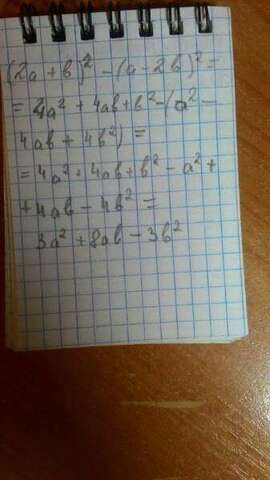 (2a+b)² - (a-2b)² =
= 4a² + 4ab + b² - (a² -
4ab + 4b²) =
= 4a² + 4ab + b² - a² +
+ 4ab - 4b² =
3a² + 8ab - 3b²